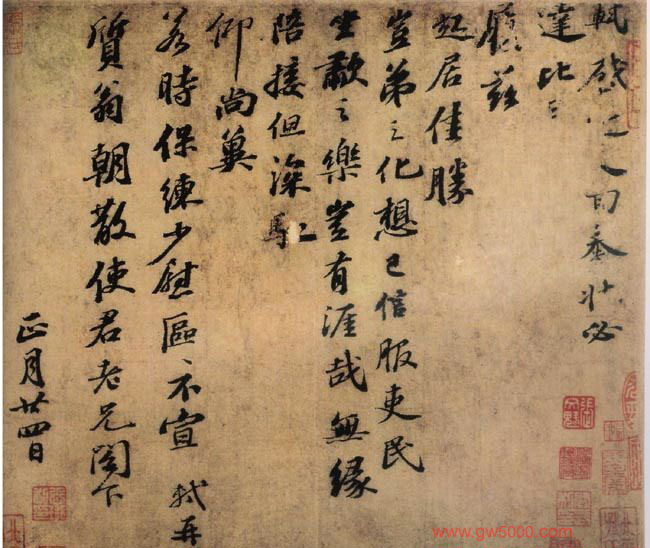 軾啟近人回奉狀必
達比日
履茲
起居佳勝
豈弟之化想已信服吏民
坐歗之樂豈有涯哉無緣
陪接但深馳
仰尚冀
若時保練少慰區〻不宣 軾再
質翁朝散使君老兄閣下
正月廿四日
www.gw5000.com